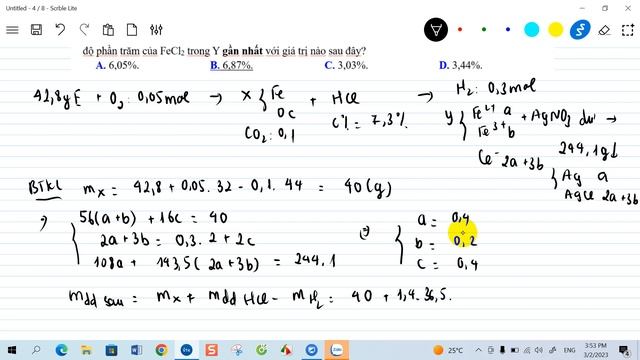 Untitled - 4 / 8 - Scrble Lite
độ phần trăm của FeCl2 trong Y gần nhất với giá trị nào sau đây?
A. 6,05%. B. 6,87%. C. 3,03%. D. 3,44%.
42,8g E + O2: 0,05mol → X { Fe + HCl → H2: 0,3mol
O c C% = 7,3%
CO2: 0,1
Y { Fe2+ a + AgNO3 dư →
Fe3+ b
Cl- 2a+3b
244,1g↓
{ Ag a
AgCl 2a+3b
BTKL mx = 42,8 + 0,05. 32 - 0,1. 44 = 40 (g)
56(a+b) + 16c = 40
2a + 3b = 0,3. 2 + 2c
108a + 143,5(2a+3b) = 244,1
a = 0,4
b = 0,2
c = 0,4
mdd sau = mx + mdd HCl - mH2 = 40 + 1,4. 36,5.
25°C ENG 3:53 PM
3/2/2023